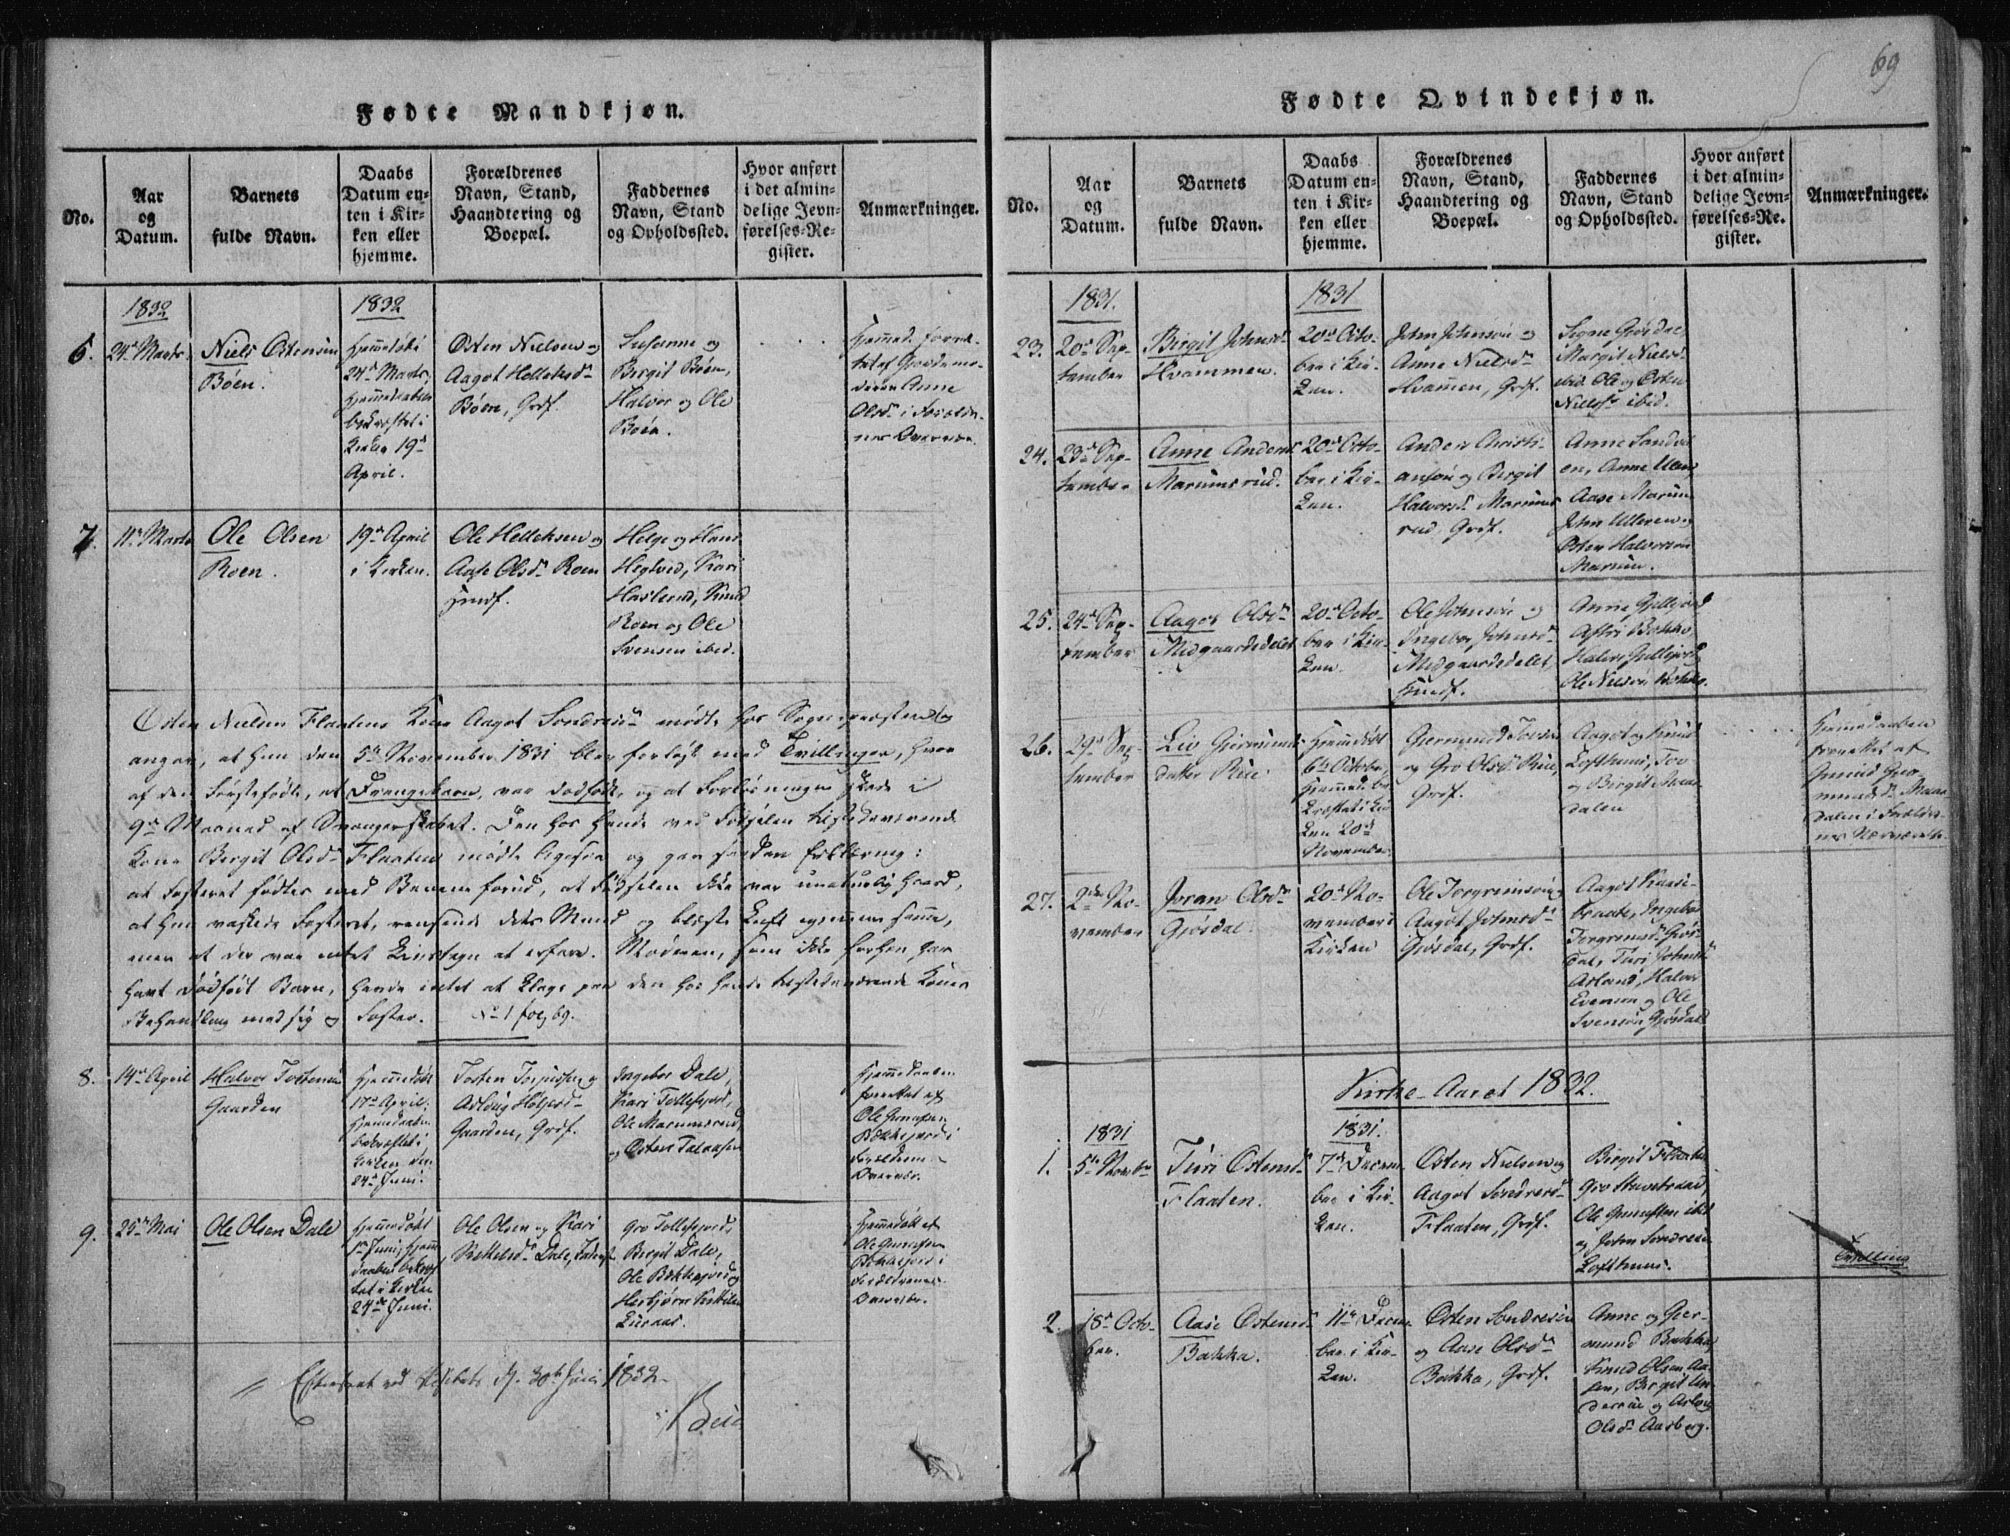 69
Fødte Mandkjøn.
No.
Aar
og
Datum.
Barnets
fulde Navn.
Daabs
Datum en-
ten i Kir-
ken eller
hjemme.
Forældrenes
Navn, Stand,
Haandtering og
Boepæl.
Faddernes
Navn, Stand
og Opholdssted.
Hvor anført
i det almin-
delige Jevn-
førelses-Re-
gister.
Anmærkninger.
1832
1832
6.
24de Marts
Niels Ostensen
Bøen.
Hjemmedøbt
24de Marts,
Hjemmedaaben
bekræftet i
Kirken 19de
April.
Osten Nielsen og
Aagot Helleksd.
Bøen, Grdf.
Susanne og
Birgit Bøen,
Halvor og Ole
Bøen.
Hjemmed. forret-
tet af
Anne
Olsd. i Forældre-
nes Overvær.
7.
11te Marts
Ole Olsen
Roen.
19de April
i Kirken.
Ole Helleksen og
Aase Olsd. Roen
Huusf.
Helge og Hans
Kari
Knud
Roen og Ole
Svensen ibid.
Osten Nielsen Flaatens Kone Aagot Sondresd. mødte hos Sognepræsten og
angav, at hun den 5te November 1831 blev forløst med Tvillinger, hvor
af den Førstefødte, et Drengebarn, var dødfødt, og at Forløsningen skede i
9de Maaned af Svangerskabet. Den hos hende ved Fødselen tilstedeværende
Kone Birgit Olsd. Flaaten mødte ligesaa og gav saadan Erklæring:
at Fosteret fødtes med Benene forud, at Fødselen ikke var unaturlig haard,
at hun vaskede Fosteret, rensede dets Mund og blæste Luft igjennem samme,
men at der var intet Livstegn at erfare. Moderen, som ikke forhen har
havt dødfødt Barn, havde intet at klage paa den hos hende tilstedeværende Kones
Behandling med sig og Foster. No 1 fol. 69.
8.
14de April
Halvor Tostensen
Gaarden
Hjemmedøbt
17de April;
Hjemmedaaben
bekræftet i
Kirken den
24de Juni.
Tosten Torjussen og
Aslaug Holjersd.
Gaarden, Grdf.
Ingebor Dale,
Kari Tollefsjord,
Ole Marumsrud,
og Osten
Hjemmedaaben
forrettet af
Ole Gunufsen
Bækkejord i
Forældrenes
Overvær.
9.
25de Mai
Ole Olsen Dale
Hjemmedøbt
1ste Juni; Hjemme-
daaben bekræf-
tet i Kirken
24de Juni.
Ole Olsen og Kari
Kittelsd. Dale,
Gro Tollefsjord,
Birgit Dale,
Ole Bækkejord og
Herbjørn Kittilsen
Luraas.
Hjemmedøbt af
Ole Gunufsen
Bækkejord i
Forældrenes
Overvær.
Efterseet ved Visitats d. 30te Juni 1832.
Fødte Qvindekjøn.
No.
Aar
og
Datum.
Barnets
fulde Navn.
Daabs
Datum en-
ten i Kir-
ken eller
hjemme.
Forældrenes
Navn, Stand,
Haandtering og
Boepæl.
Faddernes
Navn, Stand
og Opholdssted.
Hvor anført
i det almin-
delige Jevn-
førelses-Re-
gister.
Anmærkninger.
1831.
1831
23.
20de Sep-
tember
Birgit Johnsd.
Hvammen.
20de Octo-
ber i Kir-
ken.
John Johnsen og
Anne Nielsd.
Hvammen, Grdf.
Signe Gjøsdal,
Margit Nielsd.
ibid. Ole og Osten
Nielss. ibid.
24.
23de Sep-
tember
Anne Andersd.
Marumsrud.
20de Octo-
ber i Kir-
ken.
Anders Christi-
ansøn og Birgit
Halvorsd. Marums-
rud, Grdf.
Anne Sandvi-
en, Anne Ulen,
Aase Marum
John Ulleren og
Osten Halvorsøn
Marum.
25.
24de Sep-
tember
Aagot Olsd.
Midgaardsdalet
20de Octo-
ber i Kir-
ken.
Ole Johnsøn og
Ingebor Johnsd.
Midgaardsdalet
Huusf.
Anne Gjellejord
Bakka,
Halvor Gjellejord
Ole Nielsen Bakka.
26.
29de Sep-
tember
Liv Gjermunds-
datter Rue.
Hjemmedøbt
6te October,
Hjemmed. be-
kræftet i Kir-
ken 20de
November.
Gjermund Torsen
og Gro Olsd. Rue,
Grdf.
Aagot og Knud
Lofthuus, Tor
og Birgit Maar-
dalen
Hjemmedaaben
forrettet af
Maar-
dalen i Forældre-
nes Nærværelse.
27.
2den No-
vember
Joran Olsd.
Gjøsdal.
20de No-
vember i
Kirken
Ole Torgrimsøn og
Aagot Johnsd.
Gjøsdal, Grdf.
Aagot Kaasi-
braate, Ingebor
Torgrimsd. Gjøs-
dal, Turi Johnsd.
Asland, Halvor
Evensen og Ole
Svensøn Gjøsdal
Kirke-Aaret 1832.
1831
1831.
1.
5te Novbr.
Turi Ostensd.
Flaaten.
7de Decem-
ber i Kir-
ken.
Osten Nielsen og
Aagot Sondresd.
Flaaten, Grdf.
Birgit Flaaten
Gro
Ole Gunufsen ibid
og John Sondresen
Lofthuus.
Tvilling
2.
18de Octo-
ber.
Aase Ostensd.
Bakka.
11te Decem-
ber i Kir-
ken.
Osten Sondresen
og Aase Olsd.
Bakka, Grdf.
Anne og Gjer-
mund Bakka,
Knud Olsen Aa-
sen, Birgit
og Aslaug
Olsd. Aasberg.